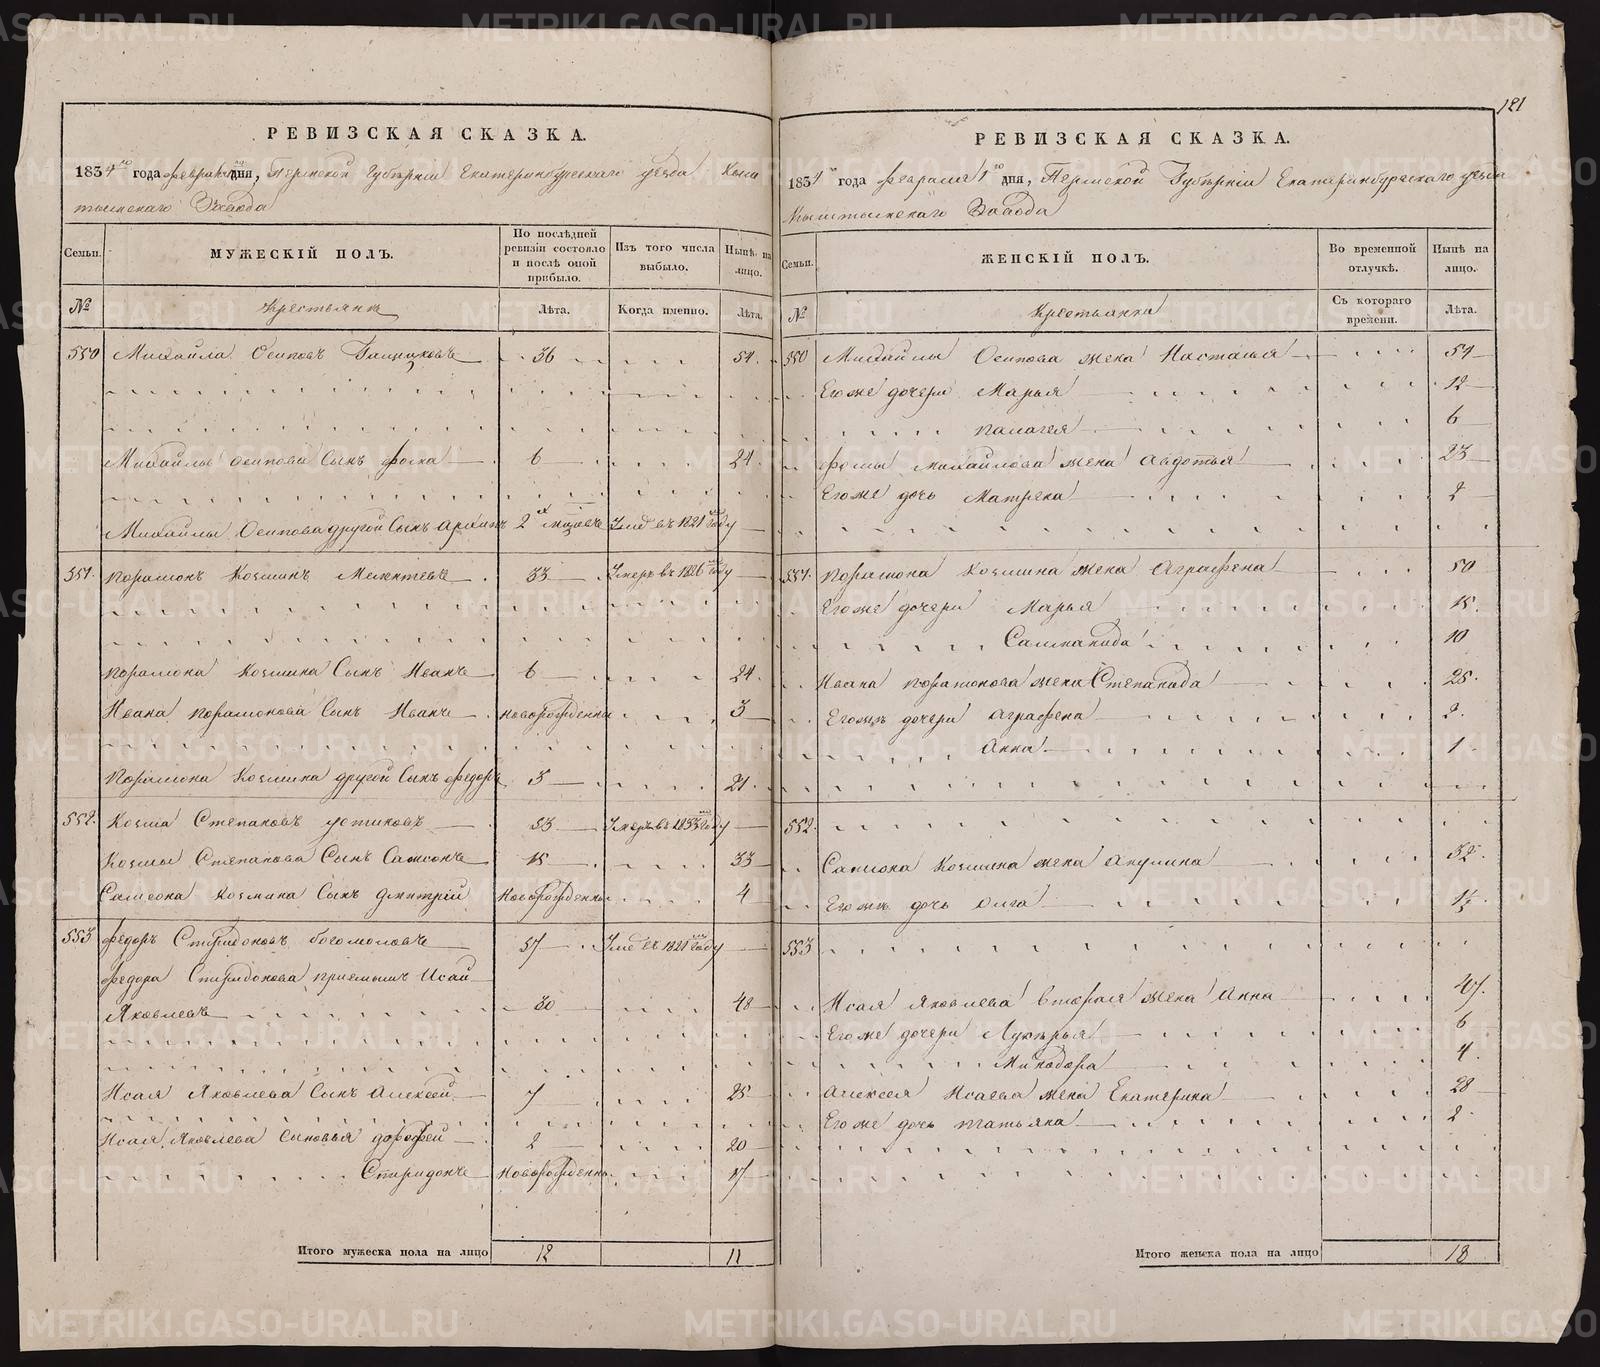 121
РЕВИЗСКАЯ СКАЗКА.
1834 года февраля дня, Пермской Губѣрніи Екатеринбургскаго уезда Кыш
тымскаго Завода
Семьи.
МУЖЕСКІЙ ПОЛЪ.
По послѣдней ревизіи состояло и послѣ оной прибыло.
Изъ того числа выбыло.
Нынѣ на лицо.
№
Крестьянъ
Лѣта.
Когда именно.
Лѣта.
550 Михайла Осиповъ 36 54
Михайлы Осипова Сынъ Фома 6 24
Михайлы Осипова другой Сынъ Архипъ 2 Умеръ въ 1821 году
551 Порамонъ Козминъ 33 Умеръ въ 1826 году
Порамона Козмина Сынъ Иванъ 6 24
Ивана Порамонова Сынъ Иванъ новорожденны 3
Порамона Козмина другой Сынъ Федоръ 3 21
552 Козма Степановъ Устиновъ 53 Умеръ въ 1833 году
Козмы Степанова Сынъ Самсонъ 15 33
Самсона Козмина Сынъ Дмитрій Новорожденны 4
553 Федоръ Спиридоновъ Богомоловъ 57 Умеръ въ 1821 году
Федора Спиридонова приемышъ Исай
Яковлевъ 30 48
Исая Яковлева Сынъ Алексей 7 25
Исая Яковлева Сыновья Дорофей 2 20
Спиридонъ Новорожденны 17
Итого мужеска пола на лицо 12 11
РЕВИЗСКАЯ СКАЗКА.
1834 года февраля 1 дня, Пермской Губѣрніи Екатеринбургскаго уезда
Кыштымскаго Завода
Семьи.
ЖЕНСКІЙ ПОЛЪ.
Во временной отлучкѣ.
Нынѣ на лицо.
№
Крестьянка
Съ котораго времени.
Лѣта.
550 Михайлы Осипова жена Настасья 51
Его же дочери Марья 12
Палагея 6
Фомы Михайлова жена Авдотья 23
Его же дочь Матрена 2
551 Порамона Козмина жена Аграфена 50
Его же дочери Марья 15
10
Ивана Порамонова жена Степанида 25
Его же дочери Аграфена 2
Анна 1
552
Самсона Козмина жена Акулина 32
Его же дочь Олга 1½
553
Исая Яковлева вторая жена Анна 47
Его же дочери Лукерья 6
Минодора 4
Алексея Исаева жена Екатерина 28
Его же дочь Татьяна 2
Итого женска пола на лицо 18
METRIKI.GASO-URAL.RU